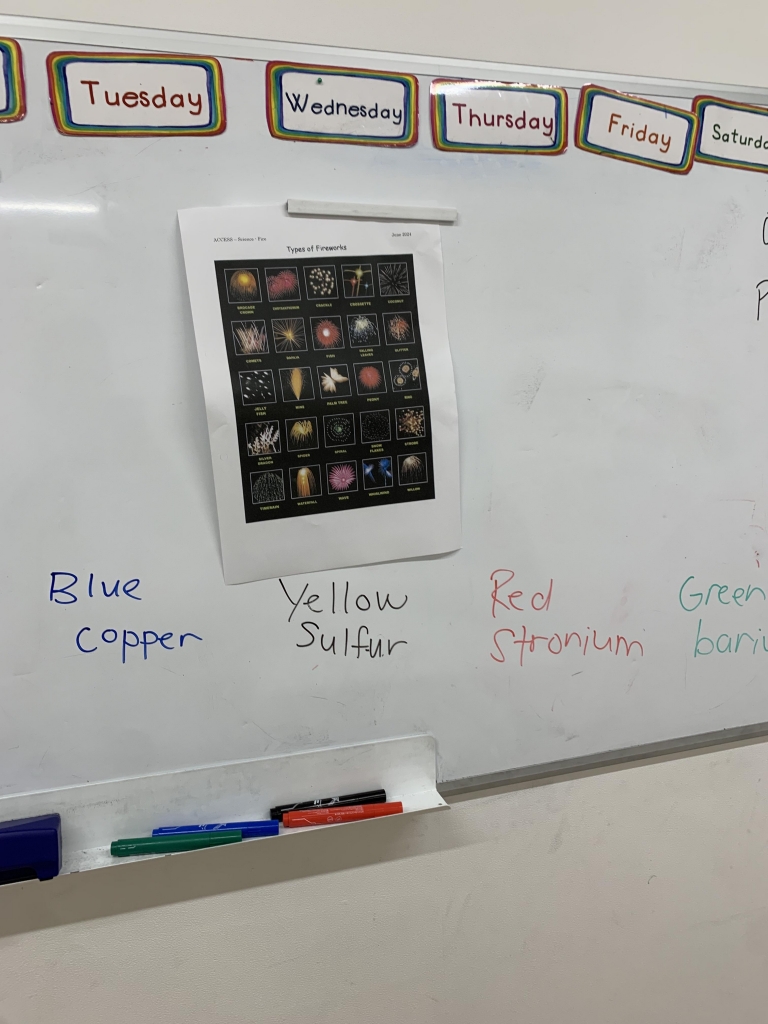 Tuesday
Wednesday
Thursday
Friday
ACCESS - Science - Fire
Types of Fireworks
BROCADE CROWN
CHRYSANTHEMUM
CRACKLE
CROSSETTE
COCONUT
COMETS
DAHLIA
FISH
FALLING LEAVES
GLITTER
JELLY FISH
PALM TREE
PEONY
RING
SILVER DRAGON
SPIDER
SPIRAL
SNOW FLAKES
STROBE
WATERFALL
WAVE
WHIRLWIND
WILLOW
Blue
Yellow
Red
Green
copper
Sulfur
Stronium